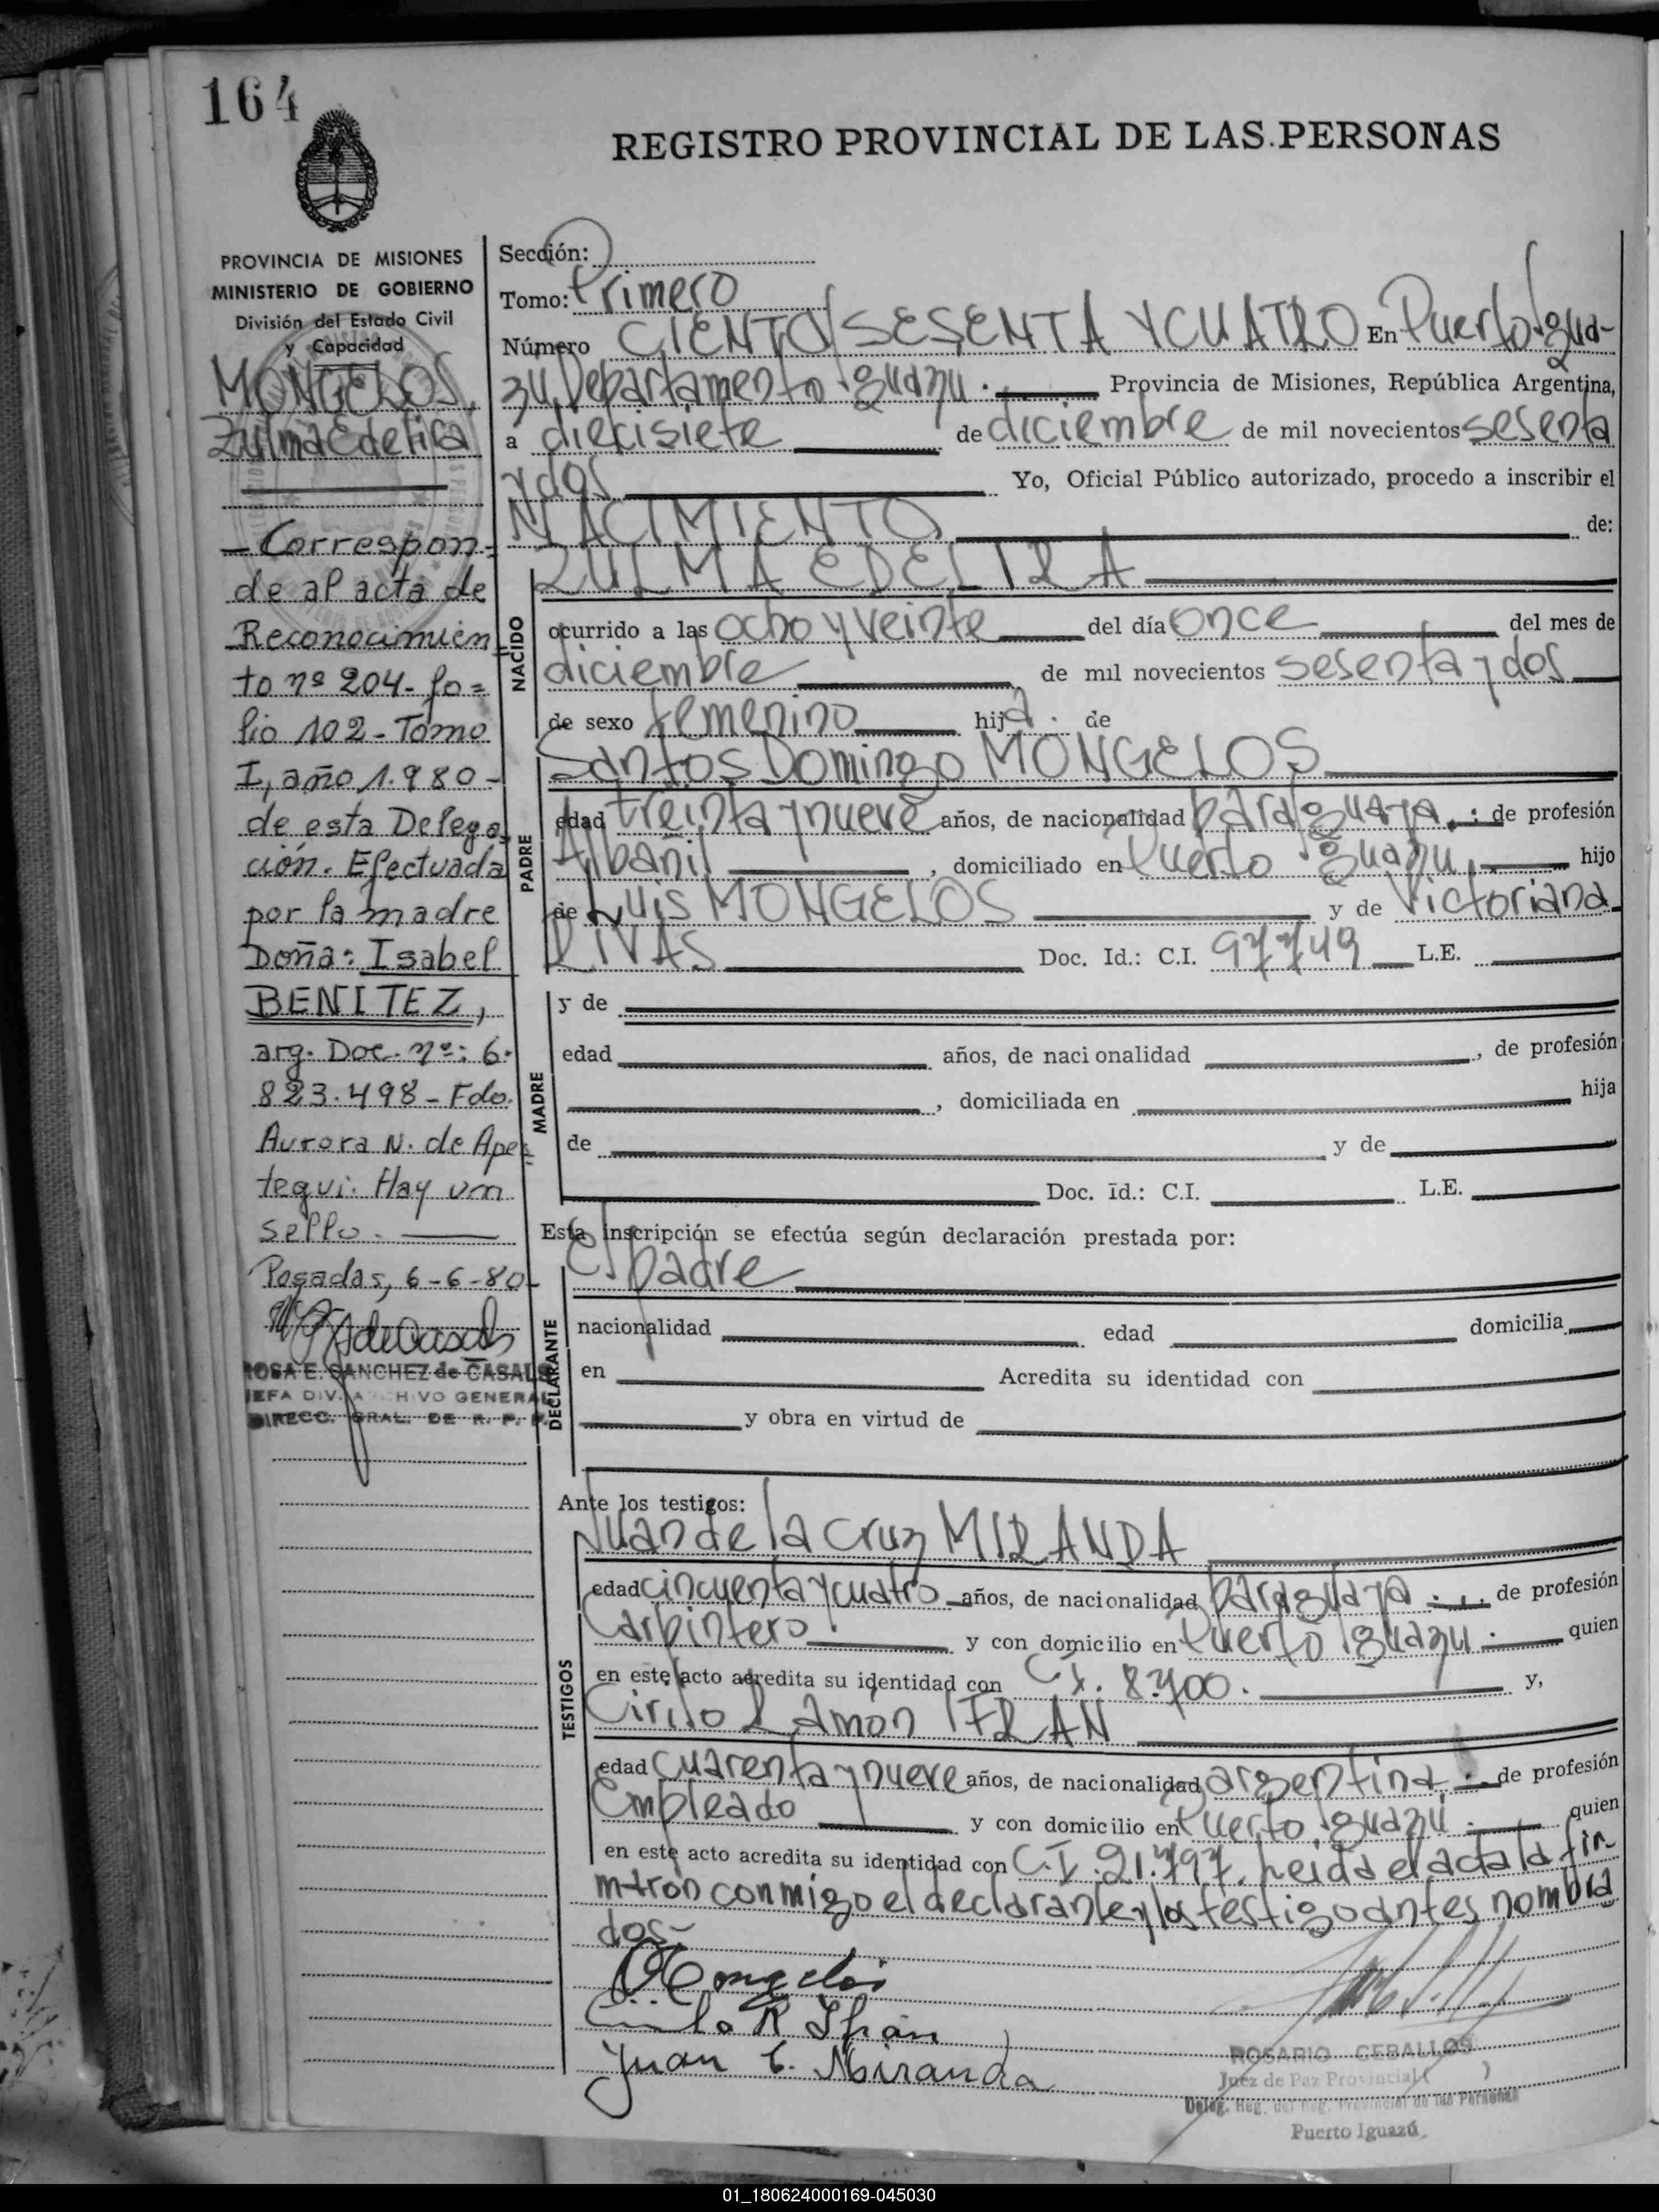 164
REGISTRO PROVINCIAL DE LAS PERSONAS
PROVINCIA DE MISIONES
MINISTERIO DE GOBIERNO
División del Estado Civil
y Capacidad
MONGELOS,
Zulma Edelira
- Correspon-
de al acta de
Reconocimien
to nº 204- fo=
lio 102 - Tomo
I, año 1.980 -
de esta Delega
ción. Efectuada
por la madre
Doña: Isabel
BENITEZ,
arg. Doc. nº: 6.
823.498 - Fdo.
Aurora N. de Apes
tegui. Hay un
sello.
Posadas, 6-6-80-
ROSA E. SANCHEZ de CASALS
JEFA DIV. ARCHIVO GENERAL
DIRECC. GRAL. DE R. P. P.
Sección:
Tomo: Primero
Número CIENTO SESENTA Y CUATRO En Puerto Igua-
zu, Departamento Iguazu. Provincia de Misiones, República Argentina,
a diecisiete de diciembre de mil novecientos sesenta
y dos Yo, Oficial Público autorizado, procedo a inscribir el
NACIMIENTO de:
NACIDO
ZULMA EDELIRA
ocurrido a las ocho y veinte del día once del mes de
diciembre de mil novecientos sesenta y dos
de sexo femenino hija. de
PADRE
Santos Domingo MONGELOS
edad treinta y nueve años, de nacionalidad paraguaya, de profesión
Albañil, domiciliado en Puerto Iguazu, hijo
de Luis MONGELOS y de Victoriana
RIVAS Doc. Id.: C.I. 97749 L.E.
MADRE
y de
edad años, de naci onalidad , de profesión
, domiciliada en hija
de y de
Doc. Id.: C.I. L.E.
Esta inscripción se efectúa según declaración prestada por:
DECLARANTE
El padre
nacionalidad edad domicilia
en Acredita su identidad con
y obra en virtud de
Ante los testigos:
TESTIGOS
Juan de la Cruz MIRANDA
edad cincuenta y cuatro años, de nacionalidad paraguaya, de profesión
Carpintero y con domicilio en Puerto Iguazu. quien
en este acto acredita su identidad con C.I. 8.700. y,
Cirilo Ramon IFRAN
edad cuarenta y nueve años, de nacionalidad argentina de profesión
Empleado y con domicilio en Puerto Iguazú. quien
en este acto acredita su identidad con C.I. 21.797. Leida el acta la fir
maron conmigo el declarante y los testigo antes nombra
dos-
Mongelos
Cirilo R Ifran
Juan C. Miranda
ROSARIO CEBALLOS
Juez de Paz Provincial
Deleg. Reg. del Reg. Provincial de las Personas
Puerto Iguazú
01_180624000169-045030